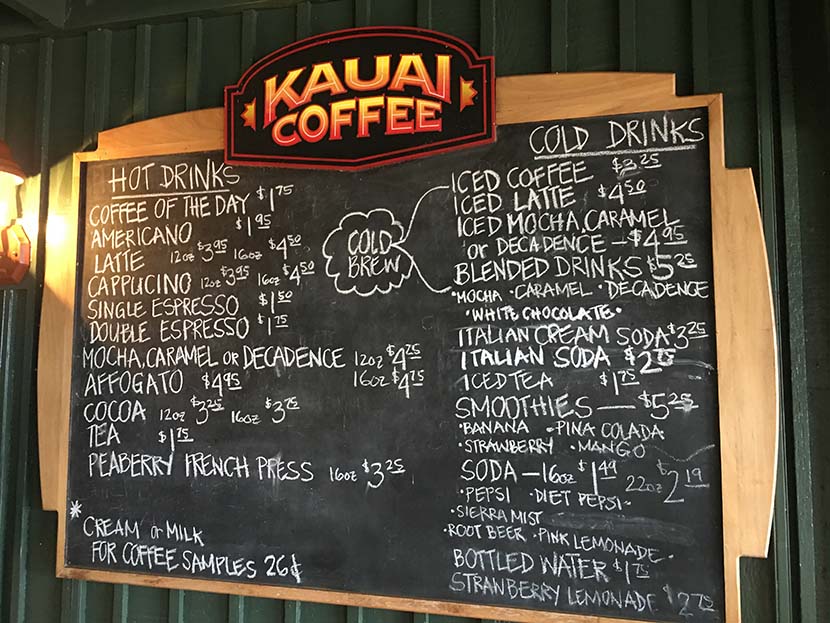 KAUAI
COFFEE
HOT DRINKS
COFFEE OF THE DAY $1.75
AMERICANO $1.95
LATTE 12oz $3.95 16oz $4.50
CAPPUCINO 12oz $3.95 16oz $4.50
SINGLE ESPRESSO $1.50
DOUBLE ESPRESSO $1.75
MOCHA, CARAMEL OR DECADENCE 12oz $4.25
16oz $4.75
AFFOGATO $4.95
COCOA 12oz $3.25 16oz $3.75
TEA $1.75
PEABERRY FRENCH PRESS 16oz $3.25
* CREAM or MILK
FOR COFFEE SAMPLES 26¢
COLD
BREW
COLD DRINKS
ICED COFFEE $3.25
ICED LATTE $4.50
ICED MOCHA, CARAMEL
or DECADENCE - $4.95
BLENDED DRINKS $5.25
• MOCHA • CARAMEL • DECADENCE
• WHITE CHOCOLATE •
ITALIAN CREAM SODA $3.25
ITALIAN SODA $2.75
ICED TEA $1.75
SMOOTHIES — $5.25
• BANANA • PINA COLADA
• STRAWBERRY • MANGO
SODA - 16oz $1.49 22oz $2.19
• PEPSI • DIET PEPSI •
• SIERRA MIST
• ROOT BEER • PINK LEMONADE •
BOTTLED WATER $1.75
STRANBERRY LEMONADE $2.75